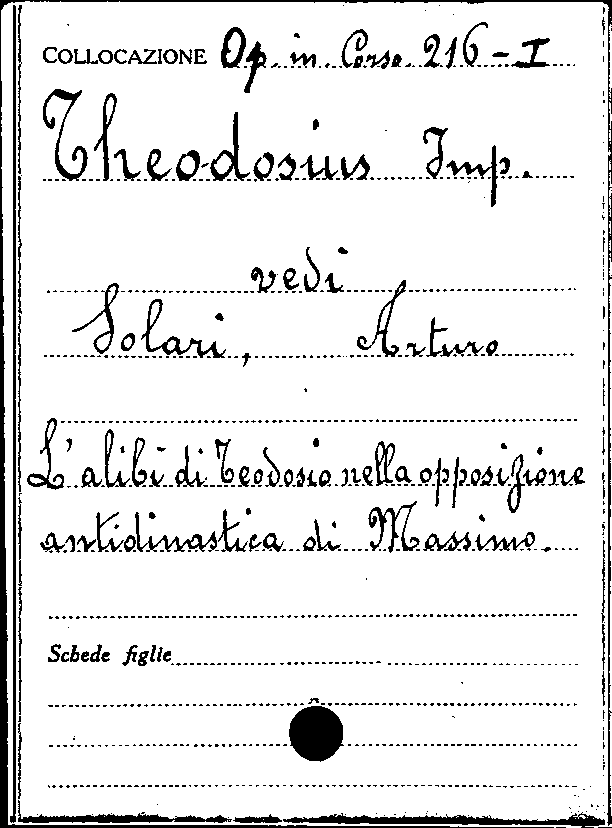 COLLOCAZIONE Op. in. Corso. 216-I
Theodosius Imp.
vedi
Solari, Arturo
L'alibi di Teodosio nella opposizione
antidinastica di Massimo.
Schede figlie